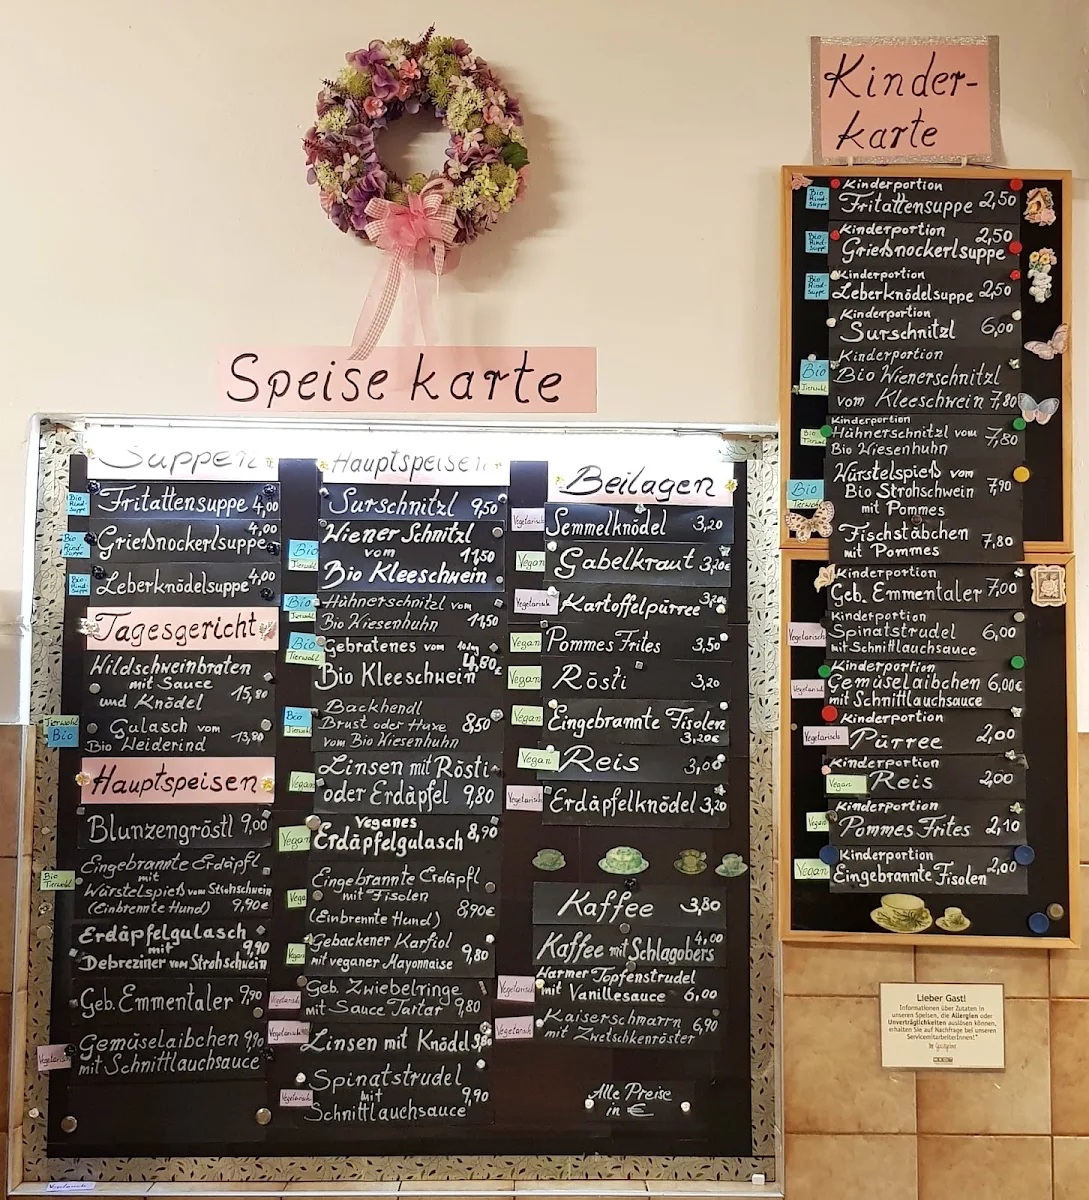 Speisekarte
Suppen
Bio Rind-suppe
Fritattensuppe 4,00
Bio Rind-suppe
Grießnockerlsuppe 4,00
Bio Rind-suppe
Leberknödelsuppe 4,00
Tagesgericht
Wildschweinbraten
mit Sauce
und Knödel 15,80
Tierwohl
Bio
Gulasch vom
Bio Weiderind 13,80
Hauptspeisen
Blunzengröstl 9,00
Bio
Tierwohl
Eingebrannte Erdäpfl
mit
Würstelspieß vom Strohschwein
(Einbrennte Hund) 9,90€
Erdäpfelgulasch
mit 9,90
Debreziner vom Strohschwein
Geb. Emmentaler 9,90
Vegetarisch
Gemüselaibchen 9,90
mit Schnittlauchsauce
Hauptspeisen
Surschnitzl 9,50
Bio
Tierwohl
Wiener Schnitzl
vom 11,50
Bio Kleeschwein
Bio
Tierwohl
Hühnerschnitzl vom
Bio Wiesenhuhn 11,50
Bio
Tierwohl
Gebratenes vom 10dag
Bio Kleeschwein 4,80€
Bio
Tierwohl
Backhendl
Brust oder Haxe 8,50
vom Bio Wiesenhuhn
Vegan
Linsen mit Rösti
oder Erdäpfel 9,80
Vegan
Veganes
Erdäpfelgulasch 8,90
Vegan
Eingebrannte Erdäpfl
mit Fisolen
(Einbrennte Hund) 8,90€
Vegan
Gebackener Karfiol
mit veganer Mayonnaise 9,80
Vegetarisch
Geb. Zwiebelringe
mit Sauce Tartar 9,80
Vegetarisch
Linsen mit Knödel 9,80
Vegetarisch
Spinatstrudel
mit 9,90
Schnittlauchsauce
Beilagen
Vegetarisch
Semmelknödel 3,20
Vegan
Gabelkraut 3,20€
Vegetarisch
Kartoffelpürree 3,20
Vegan
Pommes Frites 3,50
Vegan
Rösti 3,20
Vegan
Eingebrannte Fisolen
3,20€
Vegan
Reis 3,00
Vegetarisch
Erdäpfelknödel 3,20
Kaffee 3,80
Kaffee mit Schlagobers 4,00
Vegetarisch
Warmer Topfenstrudel
mit Vanillesauce 6,00
Vegetarisch
Kaiserschmarrn
mit Zwetschkenröster 6,90
Alle Preise
in €
Kinder-
karte
Bio Rind-suppe
Kinderportion
Fritattensuppe 2,50
Bio Rind-suppe
Kinderportion
Grießnockerlsuppe 2,50
Bio Rind-suppe
Kinderportion
Leberknödelsuppe 2,50
Kinderportion
Surschnitzl 6,00
Bio
Tierwohl
Kinderportion
Bio Wienerschnitzl
vom Kleeschwein 7,80
Bio
Tierwohl
Kinderportion
Hühnerschnitzl vom
Bio Wiesenhuhn 7,80
Bio
Tierwohl
Würstelspieß vom
Bio Strohschwein 7,90
mit Pommes
Fischstäbchen
mit Pommes 7,80
Kinderportion
Geb. Emmentaler 7,00
Vegetarisch
Kinderportion
Spinatstrudel 6,00
mit Schnittlauchsauce
Vegetarisch
Kinderportion
Gemüselaibchen 6,00€
mit Schnittlauchsauce
Vegetarisch
Kinderportion
Pürree 2,00
Vegan
Kinderportion
Reis 2,00
Vegan
Kinderportion
Pommes Frites 2,10
Vegan
Kinderportion
Eingebrannte Fisolen 2,00
Lieber Gast!
Informationen über Zutaten in
unseren Speisen, die Allergien oder
Unverträglichkeiten auslösen können,
erhalten Sie auf Nachfrage bei unseren
ServicemitarbeiterInnen!"